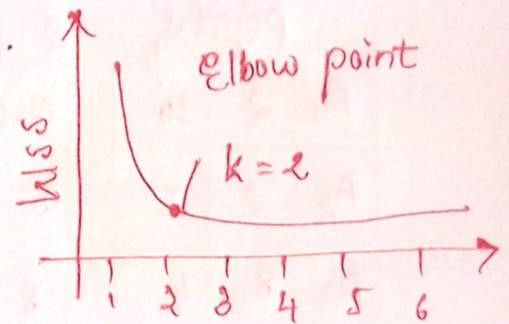 Elbow point
k = 2
WSS
1 2 3 4 5 6